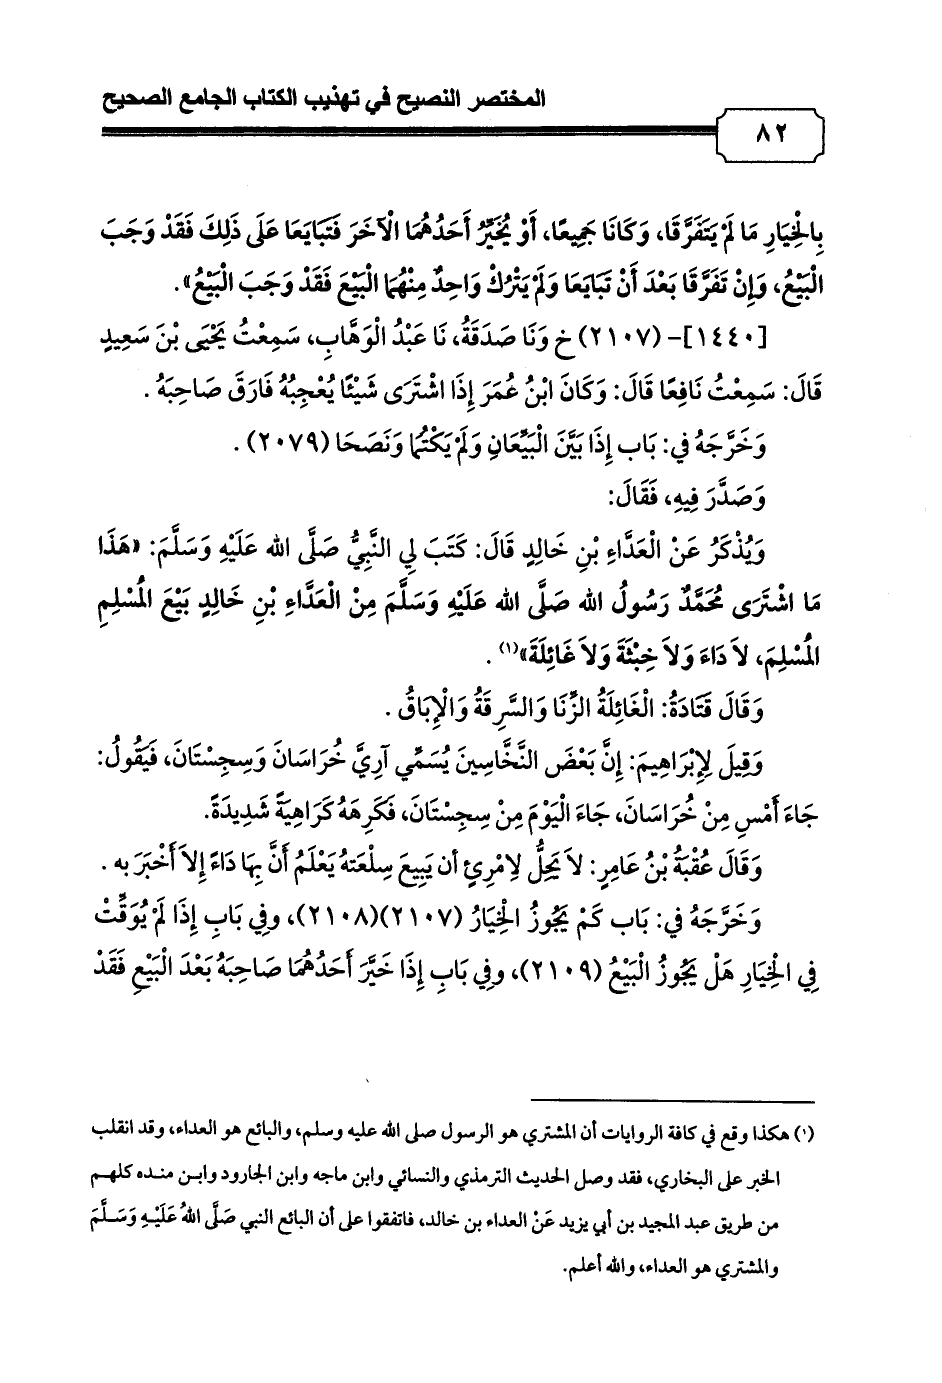 المختصر النصيح في تهذيب الكتاب الجامع الصحيح
٨٢
بِالْخِيَارِ مَا لَمْ يَتَفَرَّقَا، وَكَانَا جَمِيعًا، أَوْ يُخَيِّرُ أَحَدُهُمَا الْآخَرَ فَتَبَايَعَا عَلَى ذَلِكَ فَقَدْ وَجَبَ
الْبَيْعُ، وَإِنْ تَفَرَّقَا بَعْدَ أَنْ تَبَايَعَا وَلَمْ يَتْرُكْ وَاحِدٌ مِنْهُمَا الْبَيْعَ فَقَدْ وَجَبَ الْبَيْعُ».
[١٤٤٠]- (٢١٠٧) خ وَنَا صَدَقَةُ، نَا عَبْدُ الْوَهَّابِ، سَمِعْتُ يَحْيَى بْنَ سَعِيدٍ
قَالَ: سَمِعْتُ نَافِعًا قَالَ: وَكَانَ ابْنُ عُمَرَ إِذَا اشْتَرَى شَيْئًا يُعْجِبُهُ فَارَقَ صَاحِبَهُ .
وَخَرَّجَهُ في: بَاب إِذَا بَيَّنَ الْبَيِّعَانِ وَلَمْ يَكْتُمَا وَنَصَحَا (٢٠٧٩) .
وَصَدَّرَ فِيهِ، فَقَالَ:
وَيُذْكَرُ عَنْ الْعَدَّاءِ بْنِ خَالِدٍ قَالَ: كَتَبَ لِي النَّبِيُّ صَلَّى الله عَلَيْهِ وَسَلَّمَ: «هَذَا
مَا اشْتَرَى مُحَمَّدٌ رَسُولُ الله صَلَّى الله عَلَيْهِ وَسَلَّمَ مِنْ الْعَدَّاءِ بْنِ خَالِدٍ بَيْعَ الْمُسْلِمِ
الْمُسْلِمَ، لاَ دَاءَ وَلاَ خِبْثَةَ وَلاَ غَائِلَةَ»(١) .
وَقَالَ قَتَادَةُ: الْغَائِلَةُ الزِّنَا وَالسَّرِقَةُ وَالْإِبَاقُ .
وَقِيلَ لِإِبْرَاهِيمَ: إِنَّ بَعْضَ النَّخَّاسِينَ يُسَمِّي آرِيَّ خُرَاسَانَ وَسِجِسْتَانَ، فَيَقُولُ:
جَاءَ أَمْسِ مِنْ خُرَاسَانَ، جَاءَ الْيَوْمَ مِنْ سِجِسْتَانَ، فَكَرِهَهُ كَرَاهِيَةً شَدِيدَةً.
وَقَالَ عُقْبَةُ بْنُ عَامِرٍ: لاَ يَحِلُّ لِامْرِئٍ أن يَبِيعَ سِلْعَتهُ يَعْلَمُ أَنَّ بِهَا دَاءً إِلاَ أَخْبَرَ به .
وَخَرَّجَهُ في: بَاب كَمْ يَجُوزُ الْخِيَارُ (٢١٠٧)(٢١٠٨)، وفِي بَابِ إِذَا لَمْ يُوَقِّتْ
فِي الْخِيَارِ هَلْ يَجُوزُ الْبَيْعُ (٢١٠٩)، وفِي بَابِ إِذَا خَيَّرَ أَحَدُهُمَا صَاحِبَهُ بَعْدَ الْبَيْعِ فَقَدْ
(١) هكذا وقع في كافة الروايات أن المشتري هو الرسول صلى الله عليه وسلم، والبائع هو العداء، وقد انقلب
الخبر على البخاري، فقد وصل الحديث الترمذي والنسائي وابن ماجه وابن الجارود وابـن منـده كلهـم
من طريق عبد المجيد بن أبي يزيد عَنْ العداء بن خالد، فاتفقوا على أن البائع النبي صَلَّى اللهُ عَلَيْـهِ وَسَـلَّمَ
والمشتري هو العداء، والله أعلم.